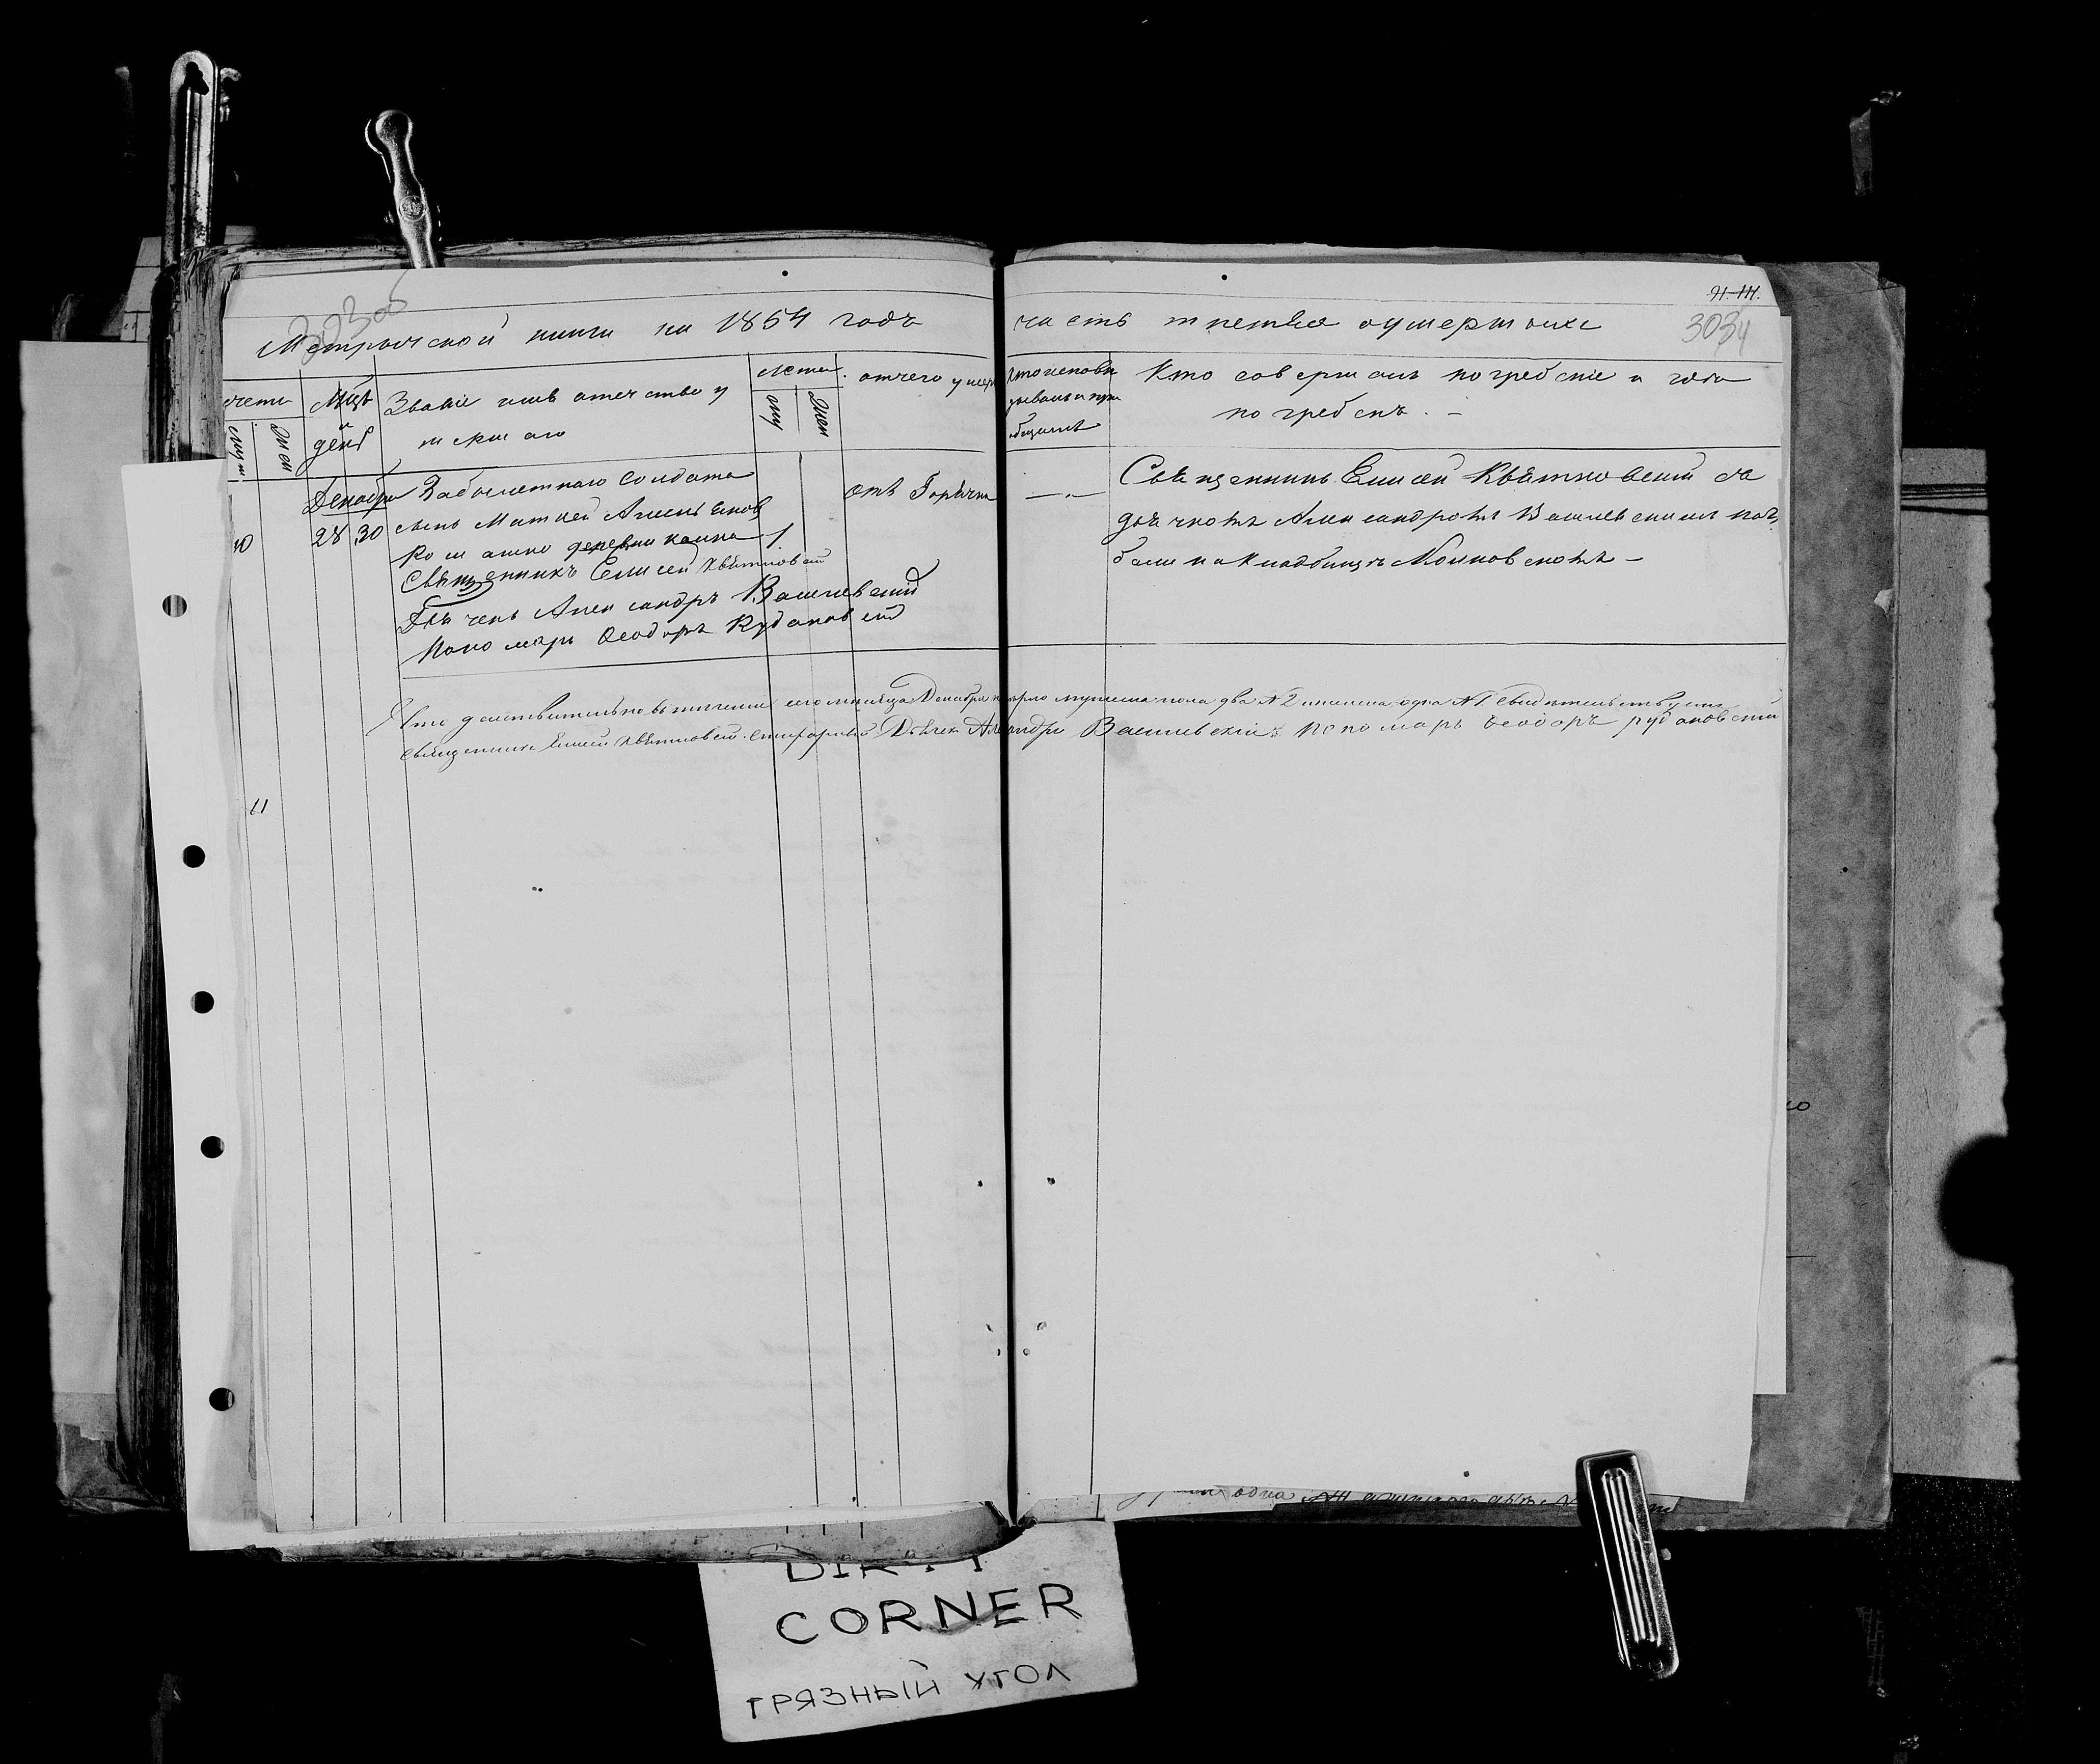 Метрической книги на 1854 годъ
часть третья о умершихъ
3034
счетъ
Муж
Жен
Мцъ и день
Званіе имя отечество у
мершаго
Лета
Му
Жен
отчего умеръ
Кто исповѣ
дывалъ и прі
общалъ
Кто совершалъ погребеніе и где
погребенъ. –
10
Декабрь
28 30
солдата
сынъ Матвей
деревни
1
Священникъ Елисей Квѣтковскій
Дьячекъ Александръ Василевскій
Пономарь Ѳеодоръ Рудановскій
отъ Горячки
Священникъ Елисей Квѣтковскій съ
дьячкомъ Александромъ Василевскимъ
на кладбищѣ
Что действительно въ теченіи сего месяца Декабря умерло мужеска пола два №2 женска одна №1 свидетельствуемъ
священникъ Елисей Квѣтковскій Дьячекъ Александръ Василевскій Пономарь Ѳеодоръ Рудановскій
11
одна
DIRTY
CORNER
ГРЯЗНЫЙ УГОЛ